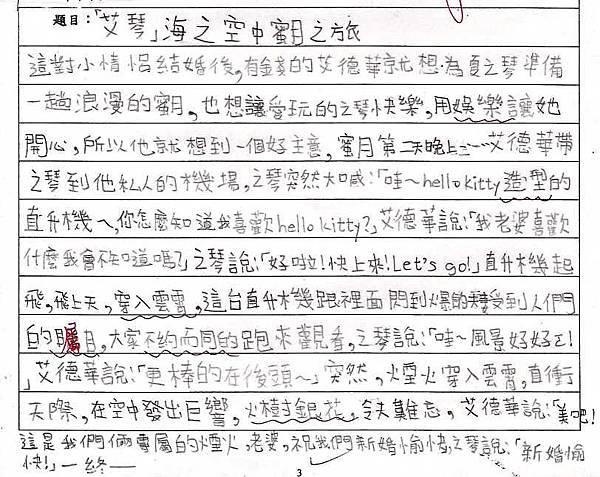 題目：「艾琴」海之空中蜜月之旅
這對小情侶結婚後，有錢的艾德華就想為夏之琴準備
一趟浪漫的蜜月，也想讓愛玩的之琴快樂，用娛樂讓她
開心，所以他就想到一個好主意，蜜月第二天晚上……艾德華帶
之琴到他私人的機場，之琴突然大喊：「哇～hello kitty造型的
直升機ㄟ，你怎麼知道我喜歡hello kitty?」艾德華說：「我老婆喜歡
什麼我會不知道嗎?」之琴說：「好啦!快上來!Let's go!」直升機起
飛，飛上天，穿入雲霄，這台直升機跟裡面閃到爆的受到人們
的矚目，大家不約而同的跑來觀看，之琴說：「哇～風景好好ㄛ!
」艾德華說：「更棒的在後頭～」突然，煙火穿入雲霄，直衝
天際，在空中發出巨響，火樹銀花，令人難忘，艾德華說：「美吧!
這是我們倆專屬的煙火，老婆，祝我們新婚愉快，之琴說：「新婚愉
快!」—終—
3